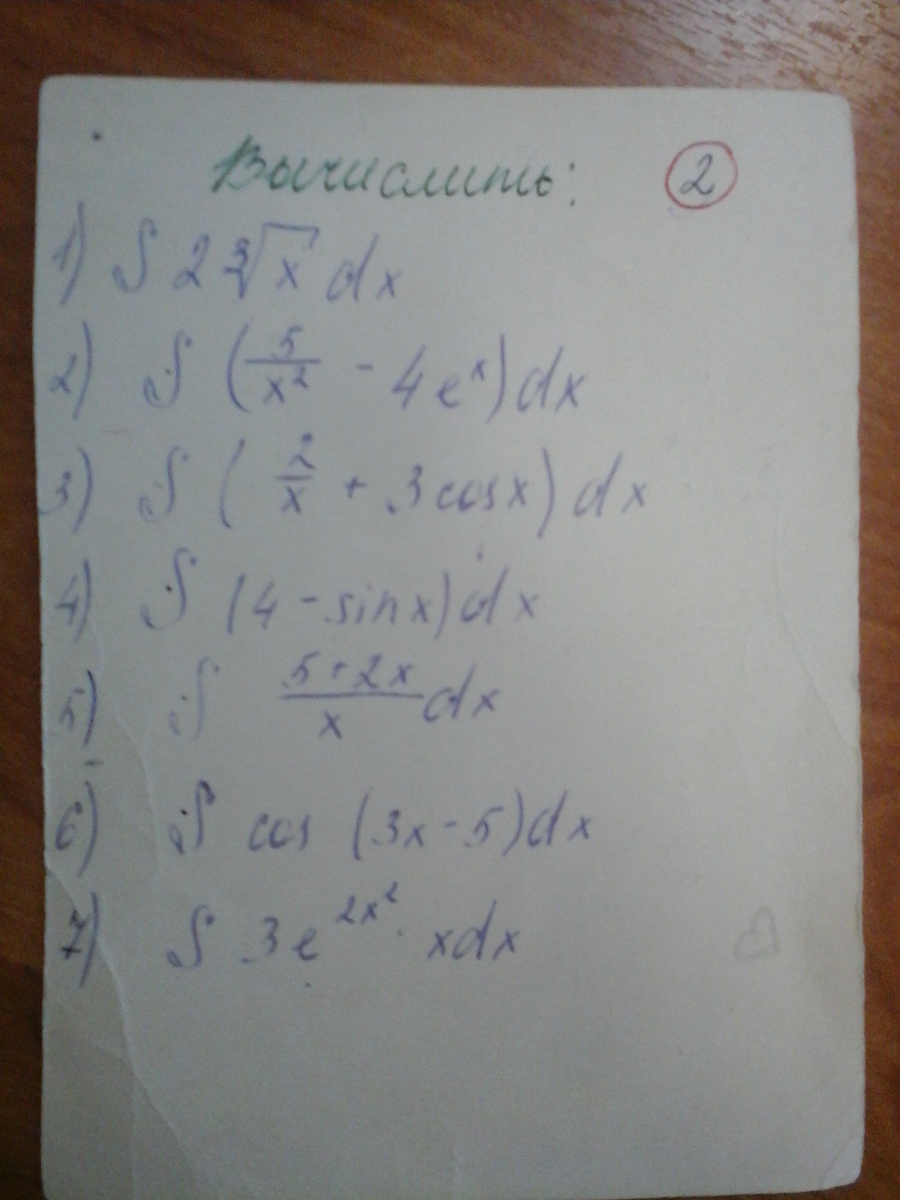 Вычислить: 2
1) ∫ 2 ∛x dx
2) ∫ (5/x² - 4eˣ) dx
3) ∫ (2/x + 3 cosx) dx
4) ∫ (4 - sinx) dx
5) ∫ (5+2x)/x dx
6) ∫ cos (3x - 5) dx
7) ∫ 3e^(2x²) · xdx